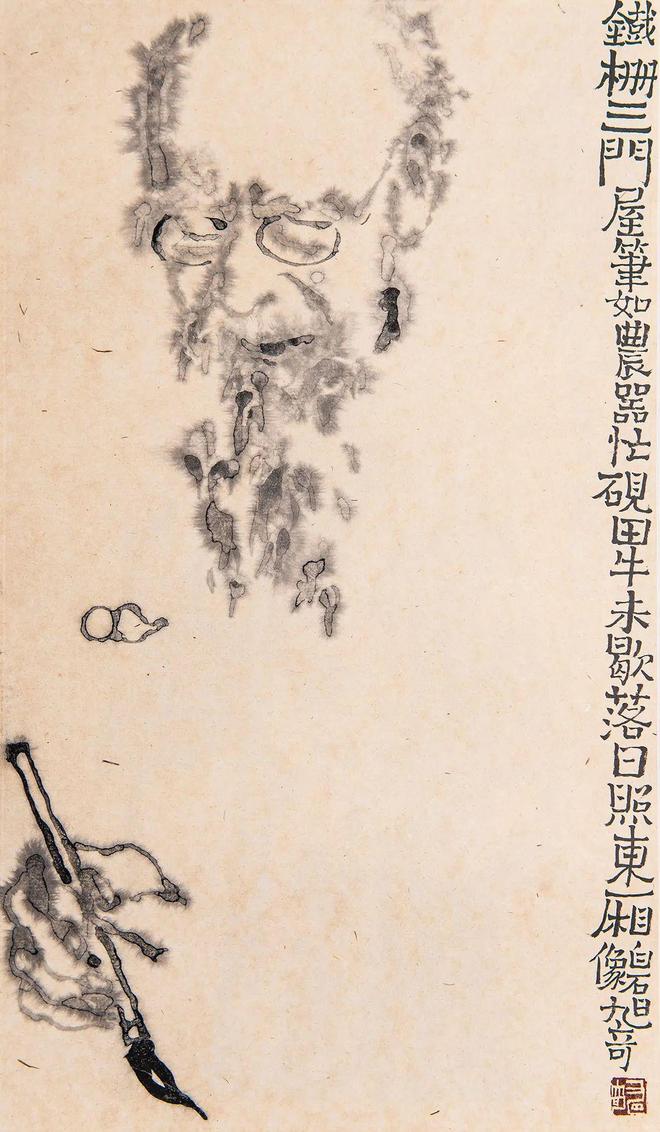 鐵柵三門屋筆如農器忙硯田牛未歇落日照東厢白石像旭竒